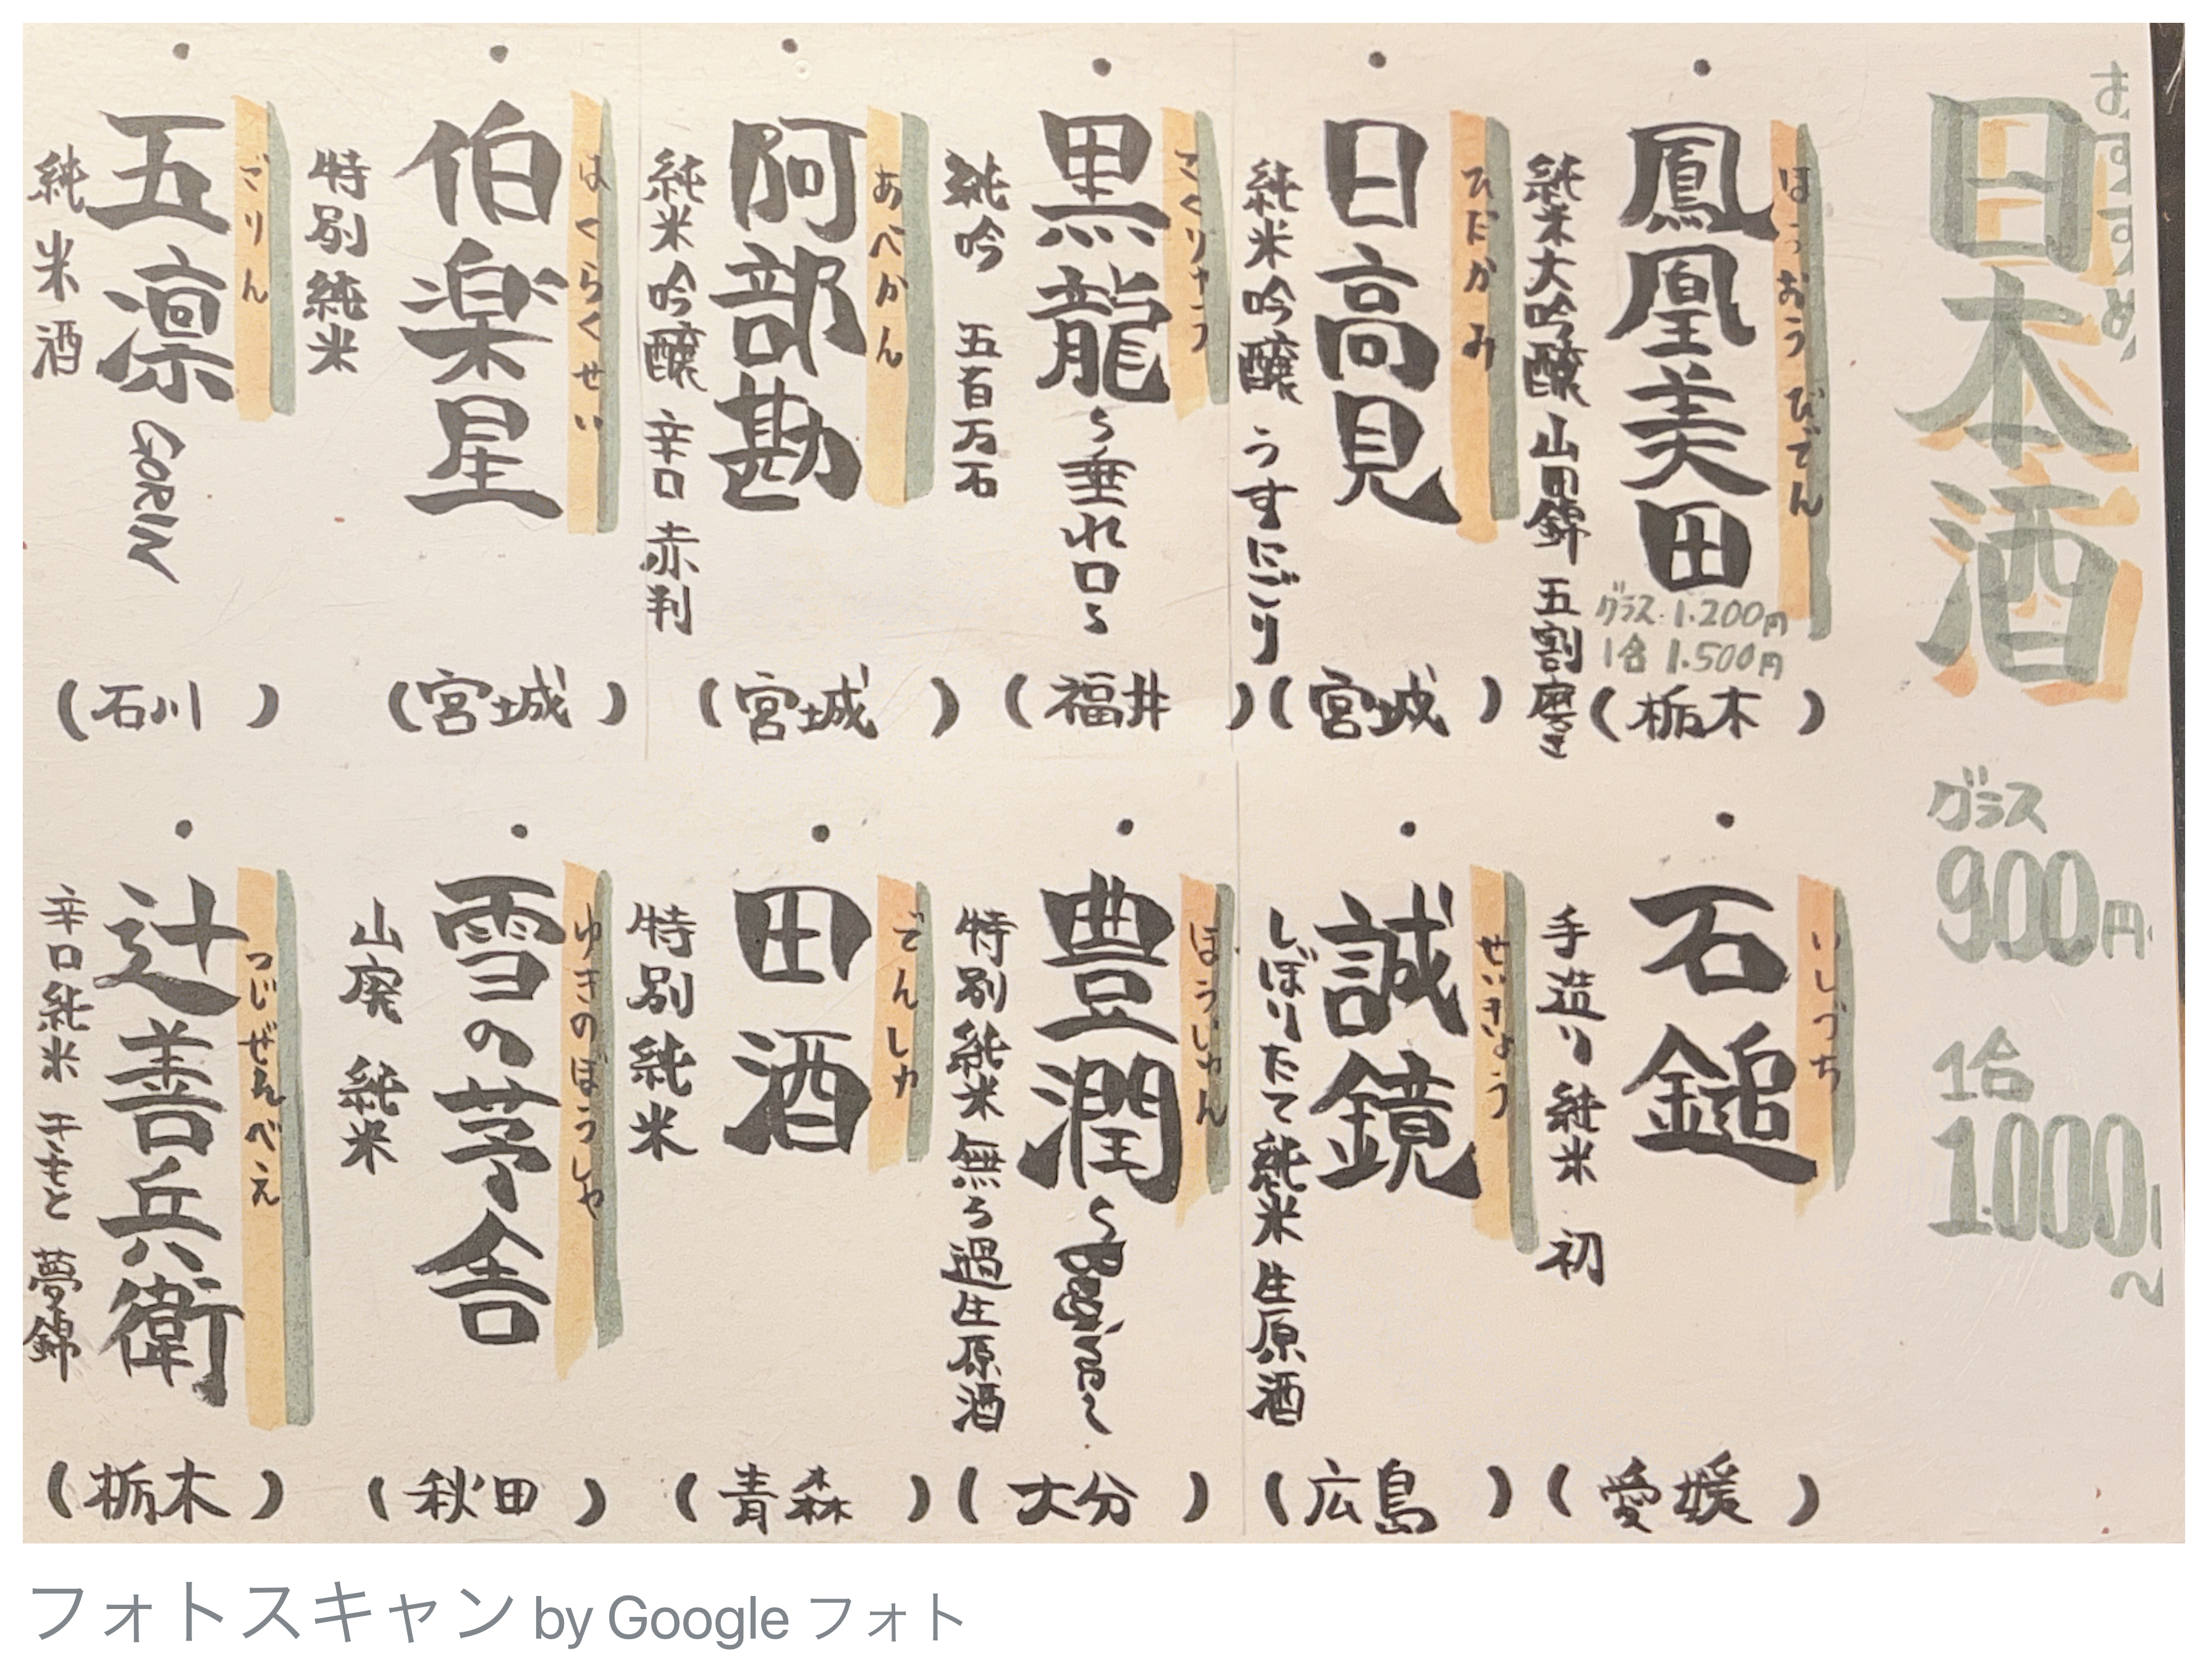 おすすめ
日本酒
グラス
900円
1合
1.000円〜
・鳳凰美田
ほうおうびでん
純米大吟醸 山田錦 五割磨き
グラス 1.200円
1合 1.500円
(栃木)
・日高見
ひだかみ
純米吟醸 うすにごり
(宮城)
・黒龍〜垂れ口〜
こくりゅう
純吟 五百万石
(福井)
・阿部勘
あべかん
純米吟醸 辛口 赤判
(宮城)
・伯楽星
はくらくせい
特別純米
(宮城)
・五凛 GORIN
ごりん
純米酒
(石川)
・石鎚
いしづち
手造り純米 初
(愛媛)
・誠鏡
せいきょう
しぼりたて純米生原酒
(広島)
・豊潤
ほうじゅん
特別純米無ろ過生原酒
(大分)
・田酒
でんしゅ
特別純米
(青森)
・雪の茅舎
ゆきのぼうしゃ
山廃 純米
(秋田)
・辻善兵衛
つじぜんべえ
辛口純米 生もと 夢錦
(栃木)
フォトスキャン by Google フォト